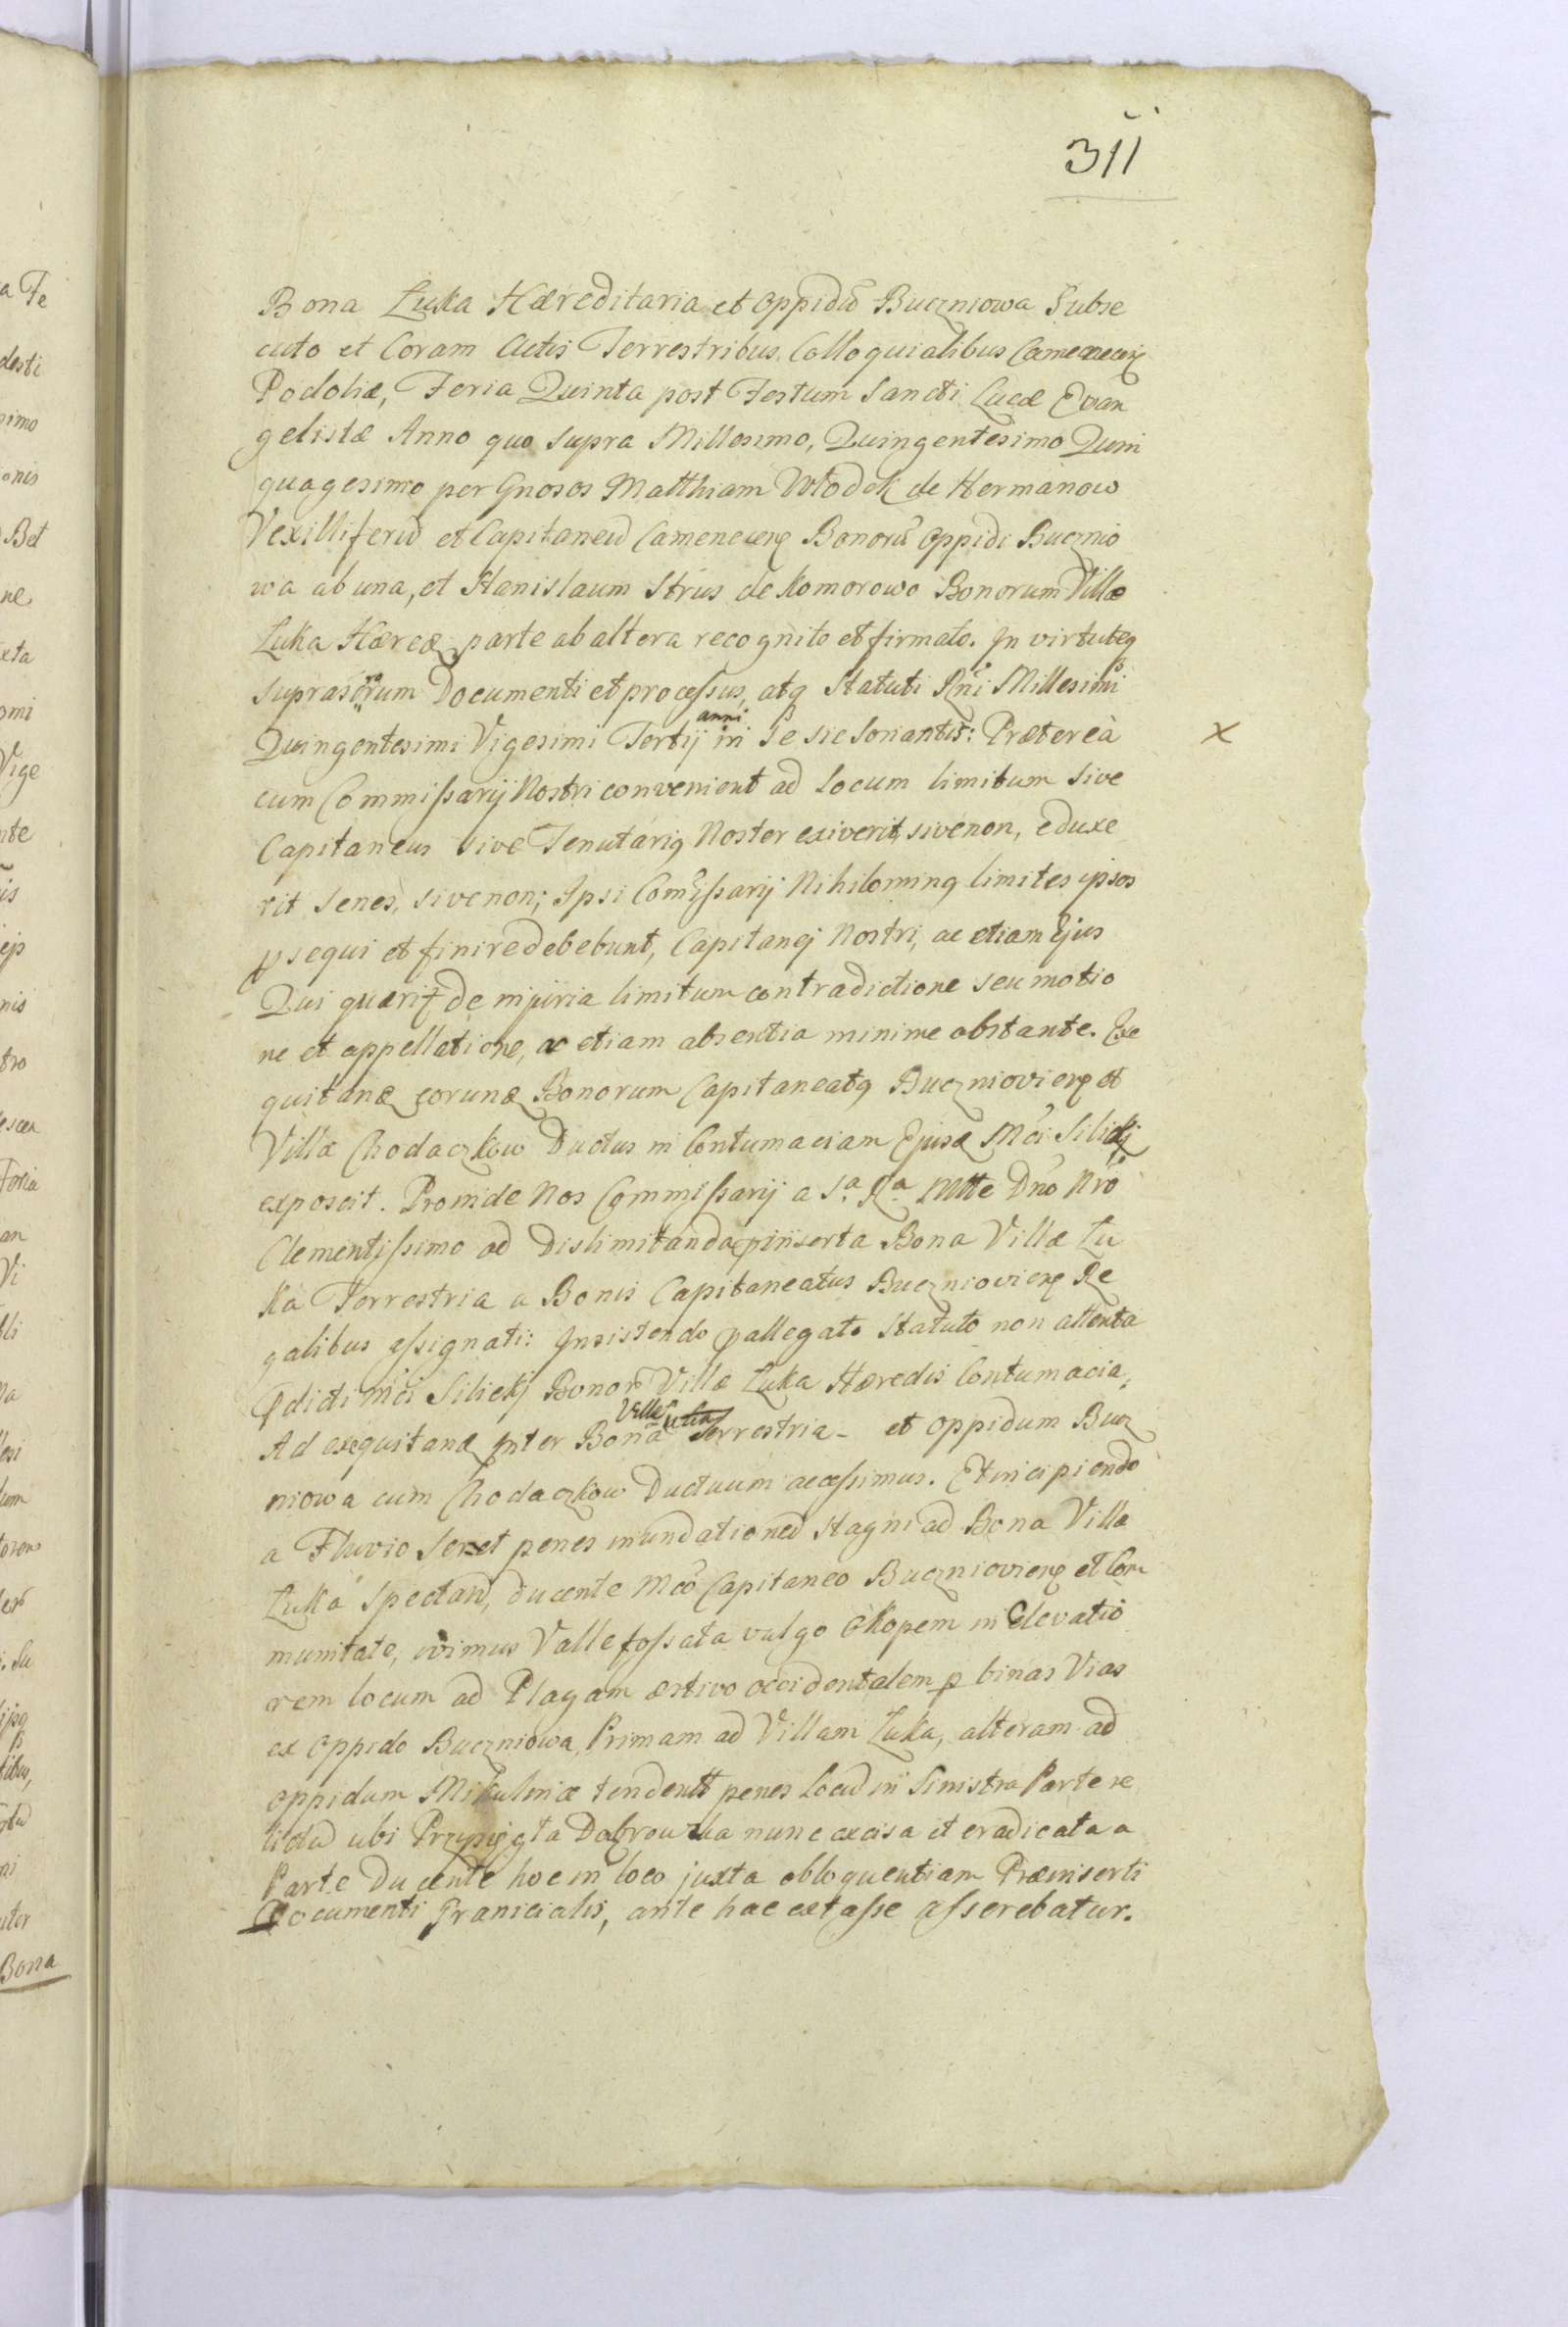 311
Bona Łuka Hæreditaria et Oppidũ Buczniowa Subse
cuto et Coram Actis Terrestribus Colloquialibus
Podoliæ, Feria Quinta post Festum Sancti Lucæ Evan
gelistæ Anno quo supra Millesimo, Quingentesimo Quin
quagesimo per Gnosos Matthiam Włodek de Hermanow
Vexilliferũ et Capitaneũ Bonorũ Oppidi Bucznio
wa ab una, et Stanislaum Strus de Komorowo Bonorum Villæ
Łuka parte ab altera recognito et firmato. In virtuteq
Documenti et processus, atq Statuti Millesimi
Quingentesimi Vigesimi Tertij anni in se sic sonantis: Præterea
X
cum Commissarij Nostri convenient ad Locum limitum sive
Capitaneus sive Tenutariq Noster exiverit, sive non, eduxe
rit senes, sive non; Ipsi Comissarij Nihilominq limites ipsos
psequi et finire debebunt, Capitanej Nostri, ac etiam Ejus
Qui de injuria limitum contradictione seu motio
ne et appellatione, ac etiam absentia minime obstante. Exe
Bonorum Capitaneatq et
Villæ Chodaczkow Ductus in Contumaciam
exposcit. Proinde Nos Commissarij a S.a R.a Mtte Dño Nro
Clementissimo ad Dislimitanda Bona Villæ Łu
ka Terrestria a Bonis Capitaneatus Re
galibus assignati: Insistendo pallegato Statuto non attenta
pdicti Silickj Bonorũ Villæ Łuka Hæredis Contumacia,
Ad Inter Bona Villæ Terrestria - et Oppidum Bucz
niowa cum Chodaczkow Ductuum accessimus. Et incipiendo
a Fluvio Seret penes inundationeũ Stagni ad Bona Villæ
Łuka Spectañ, ducente Mco Capitaneo et Com
munitate, ivimus Valle fossata vulgo Okopem in elevatio
rem locum ad Plagam æstivo occidentalem p binas Vias
ex Oppido Buczniowa, Primam ad Villam Łuka, alteram ad
oppidum Mikulińce penes Locũ in Sinistra Parte re
lictũ ubi Dąbrowka nunc excisa et eradicata a
Parte Ducente hoc in loco juxta obloquentiam Præinserti
Documenti Granicialis, ante hac extasse asserebatur.